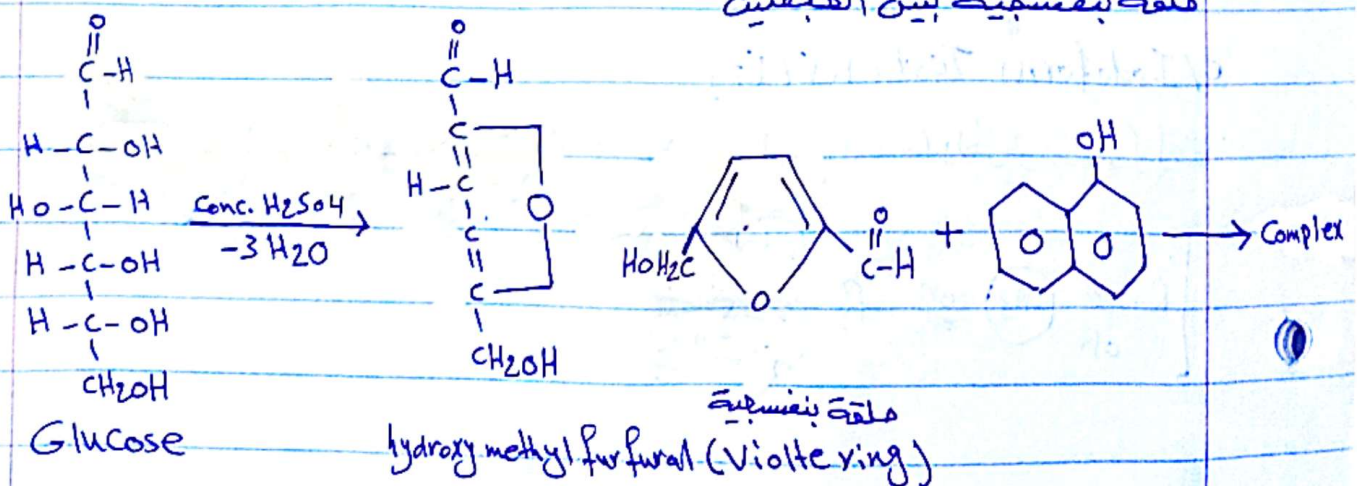 حلقة بنفسجية بين
O
C-H
H-C-OH
HO-C-H
H-C-OH
H-C-OH
CH2OH
Glucose
Conc. H2SO4
-3 H2O
O
C-H
C
H-C
O
C
C
CH2OH
HOH2C
O
O
C-H
+
OH
O O
Complex
حلقة بنفسجية
hydroxy methyl furfural (Violte ring)